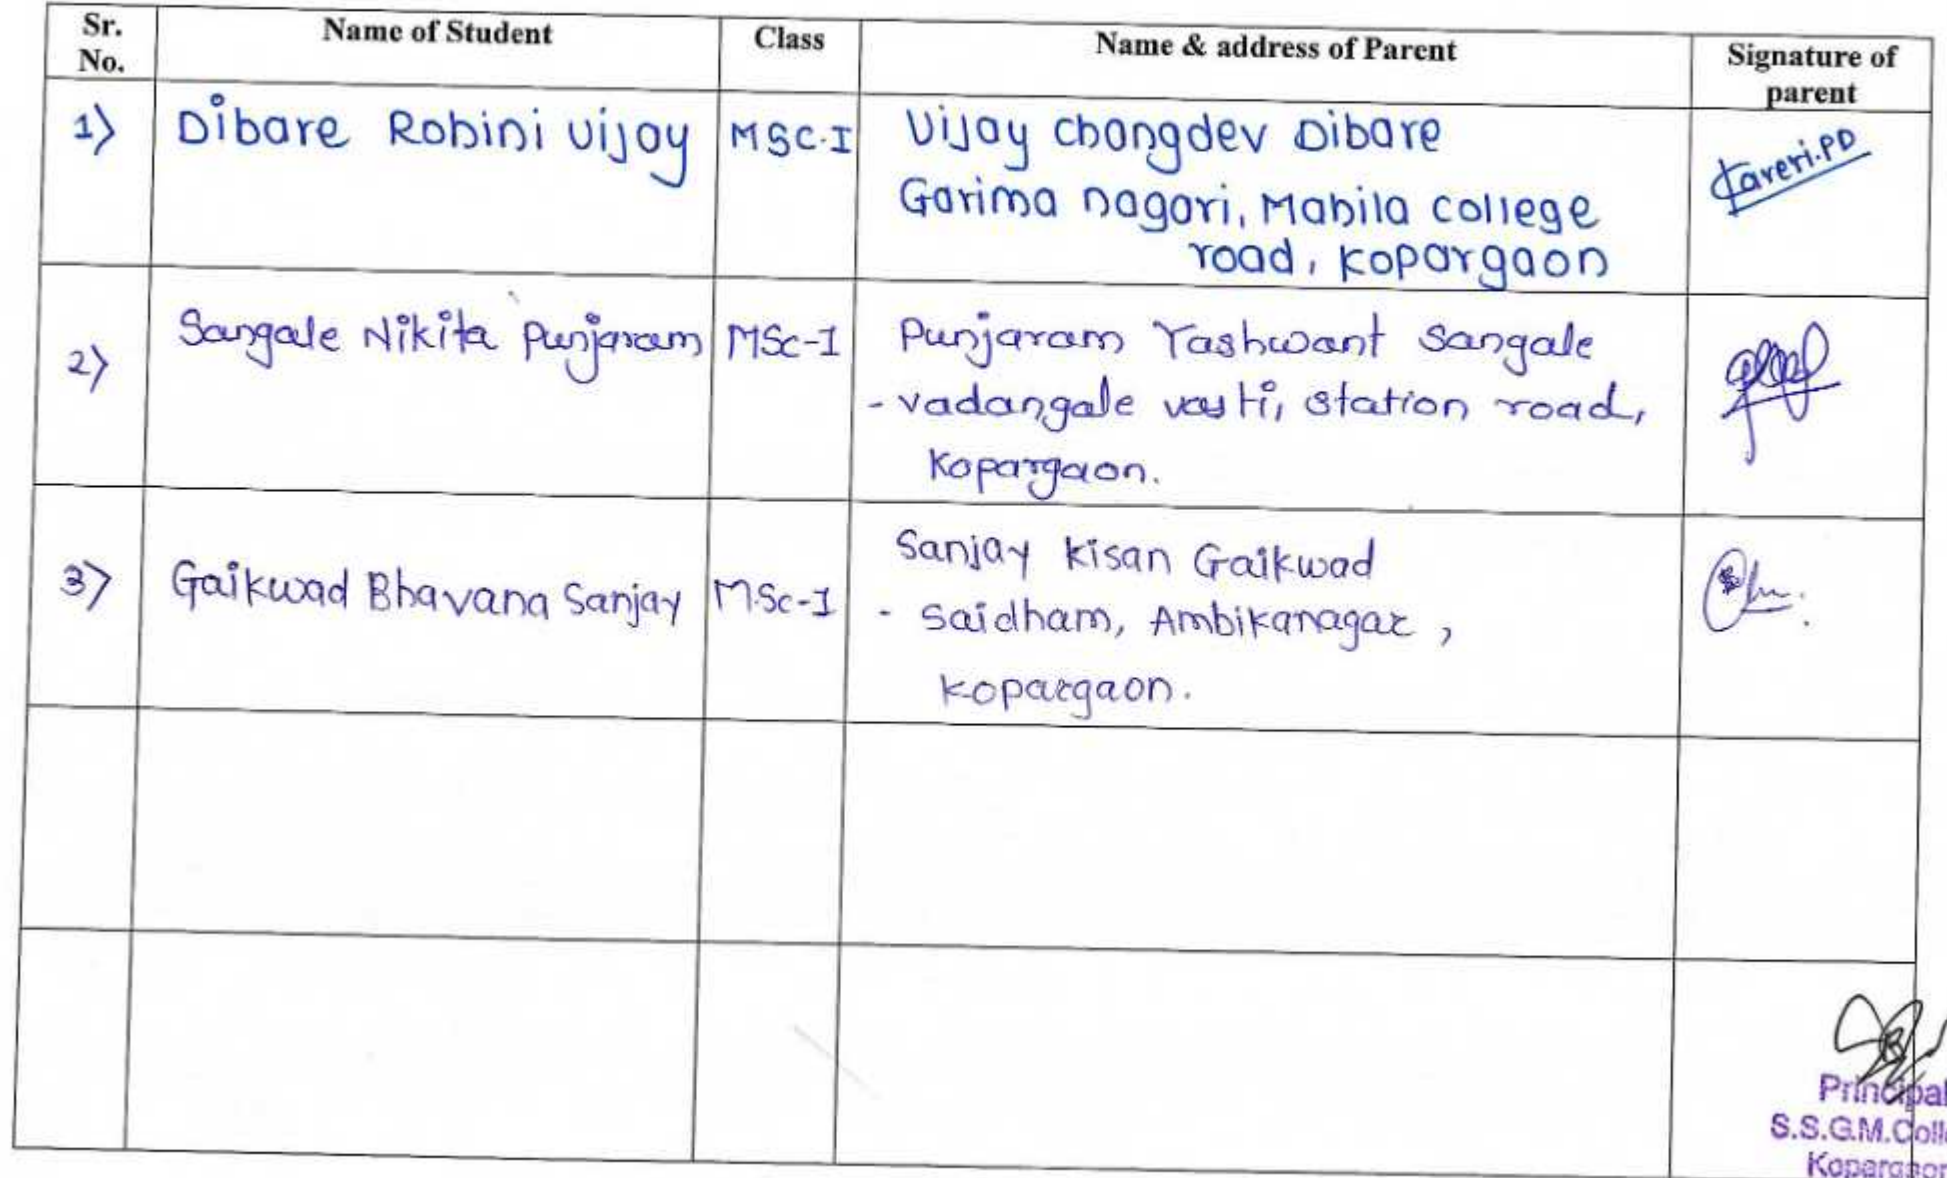 Sr. No. Name of Student Class Name & address of Parent Signature of parent
1) Dihare Rohini vijay MSC.I Vijay changdev Dihare
Garima nagari, Mahila college
road, kopargaon
Kaveri.PD
2) Sangale Nikita Punjaram MSc-I Punjaram Yashwant Sangale
- vadangale vasti, station road,
Kopargaon.
3) Gaikwad Bhavana Sanjay M.Sc-I Sanjay kisan Gaikwad
- Saidham, Ambikanagar ,
kopargaon.
Principal
S.S.G.M.Colle
Kopargaon